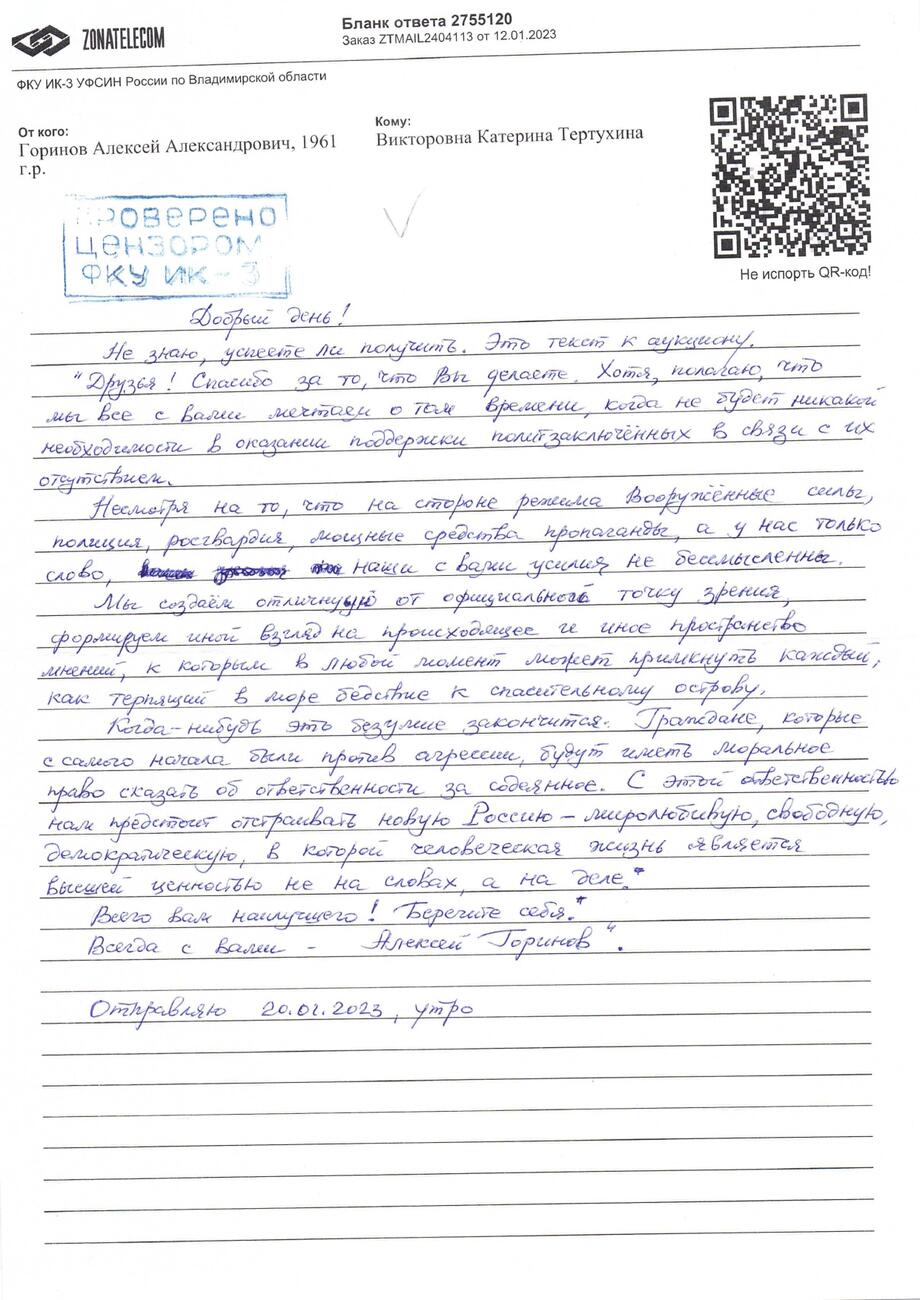 ZONATELECOM
Бланк ответа 2755120
Заказ ZTMAIL2404113 от 12.01.2023
ФКУ ИК-3 УФСИН России по Владимирской области
От кого:
Горинов Алексей Александрович, 1961
г.р.
Кому:
Викторовна Катерина Тертухина
Не испорть QR-код!
ПРОВЕРЕНО
ЦЕНЗОРОМ
ФКУ ИК-3
Добрый день!
Не знаю, успеете ли получить. Это текст к аукциону.
"Друзья! Спасибо за то, что Вы делаете. Хотя, полагаю, что
мы все с вами мечтаем о том времени, когда не будет никакой
необходимости в оказании поддержки политзаключённых в связи с их
отсутствием.
Несмотря на то, что на стороне режима Вооружённые силы,
полиция, росгвардия, мощные средства пропаганды, а у нас только
слово, наши с вами усилия не бессмысленны.
Мы создаём отличную от официальной точку зрения,
формируем иной взгляд на происходящее и иное пространство
мнений, к которым в любой момент может примкнуть каждый,
как терпящий в море бедствие к спасительному острову.
Когда-нибудь это безумие закончится. Граждане, которые
с самого начала были против агрессии, будут иметь моральное
право сказать об ответственности за содеянное. С этой ответственностью
нам предстоит отстраивать новую Россию – миролюбивую, свободную,
демократическую, в которой человеческая жизнь является
высшей ценностью не на словах, а на деле.
Всего вам наилучшего! Берегите себя.
Всегда с вами - Алексей Горинов".
Отправляю 20.01.2023, утро